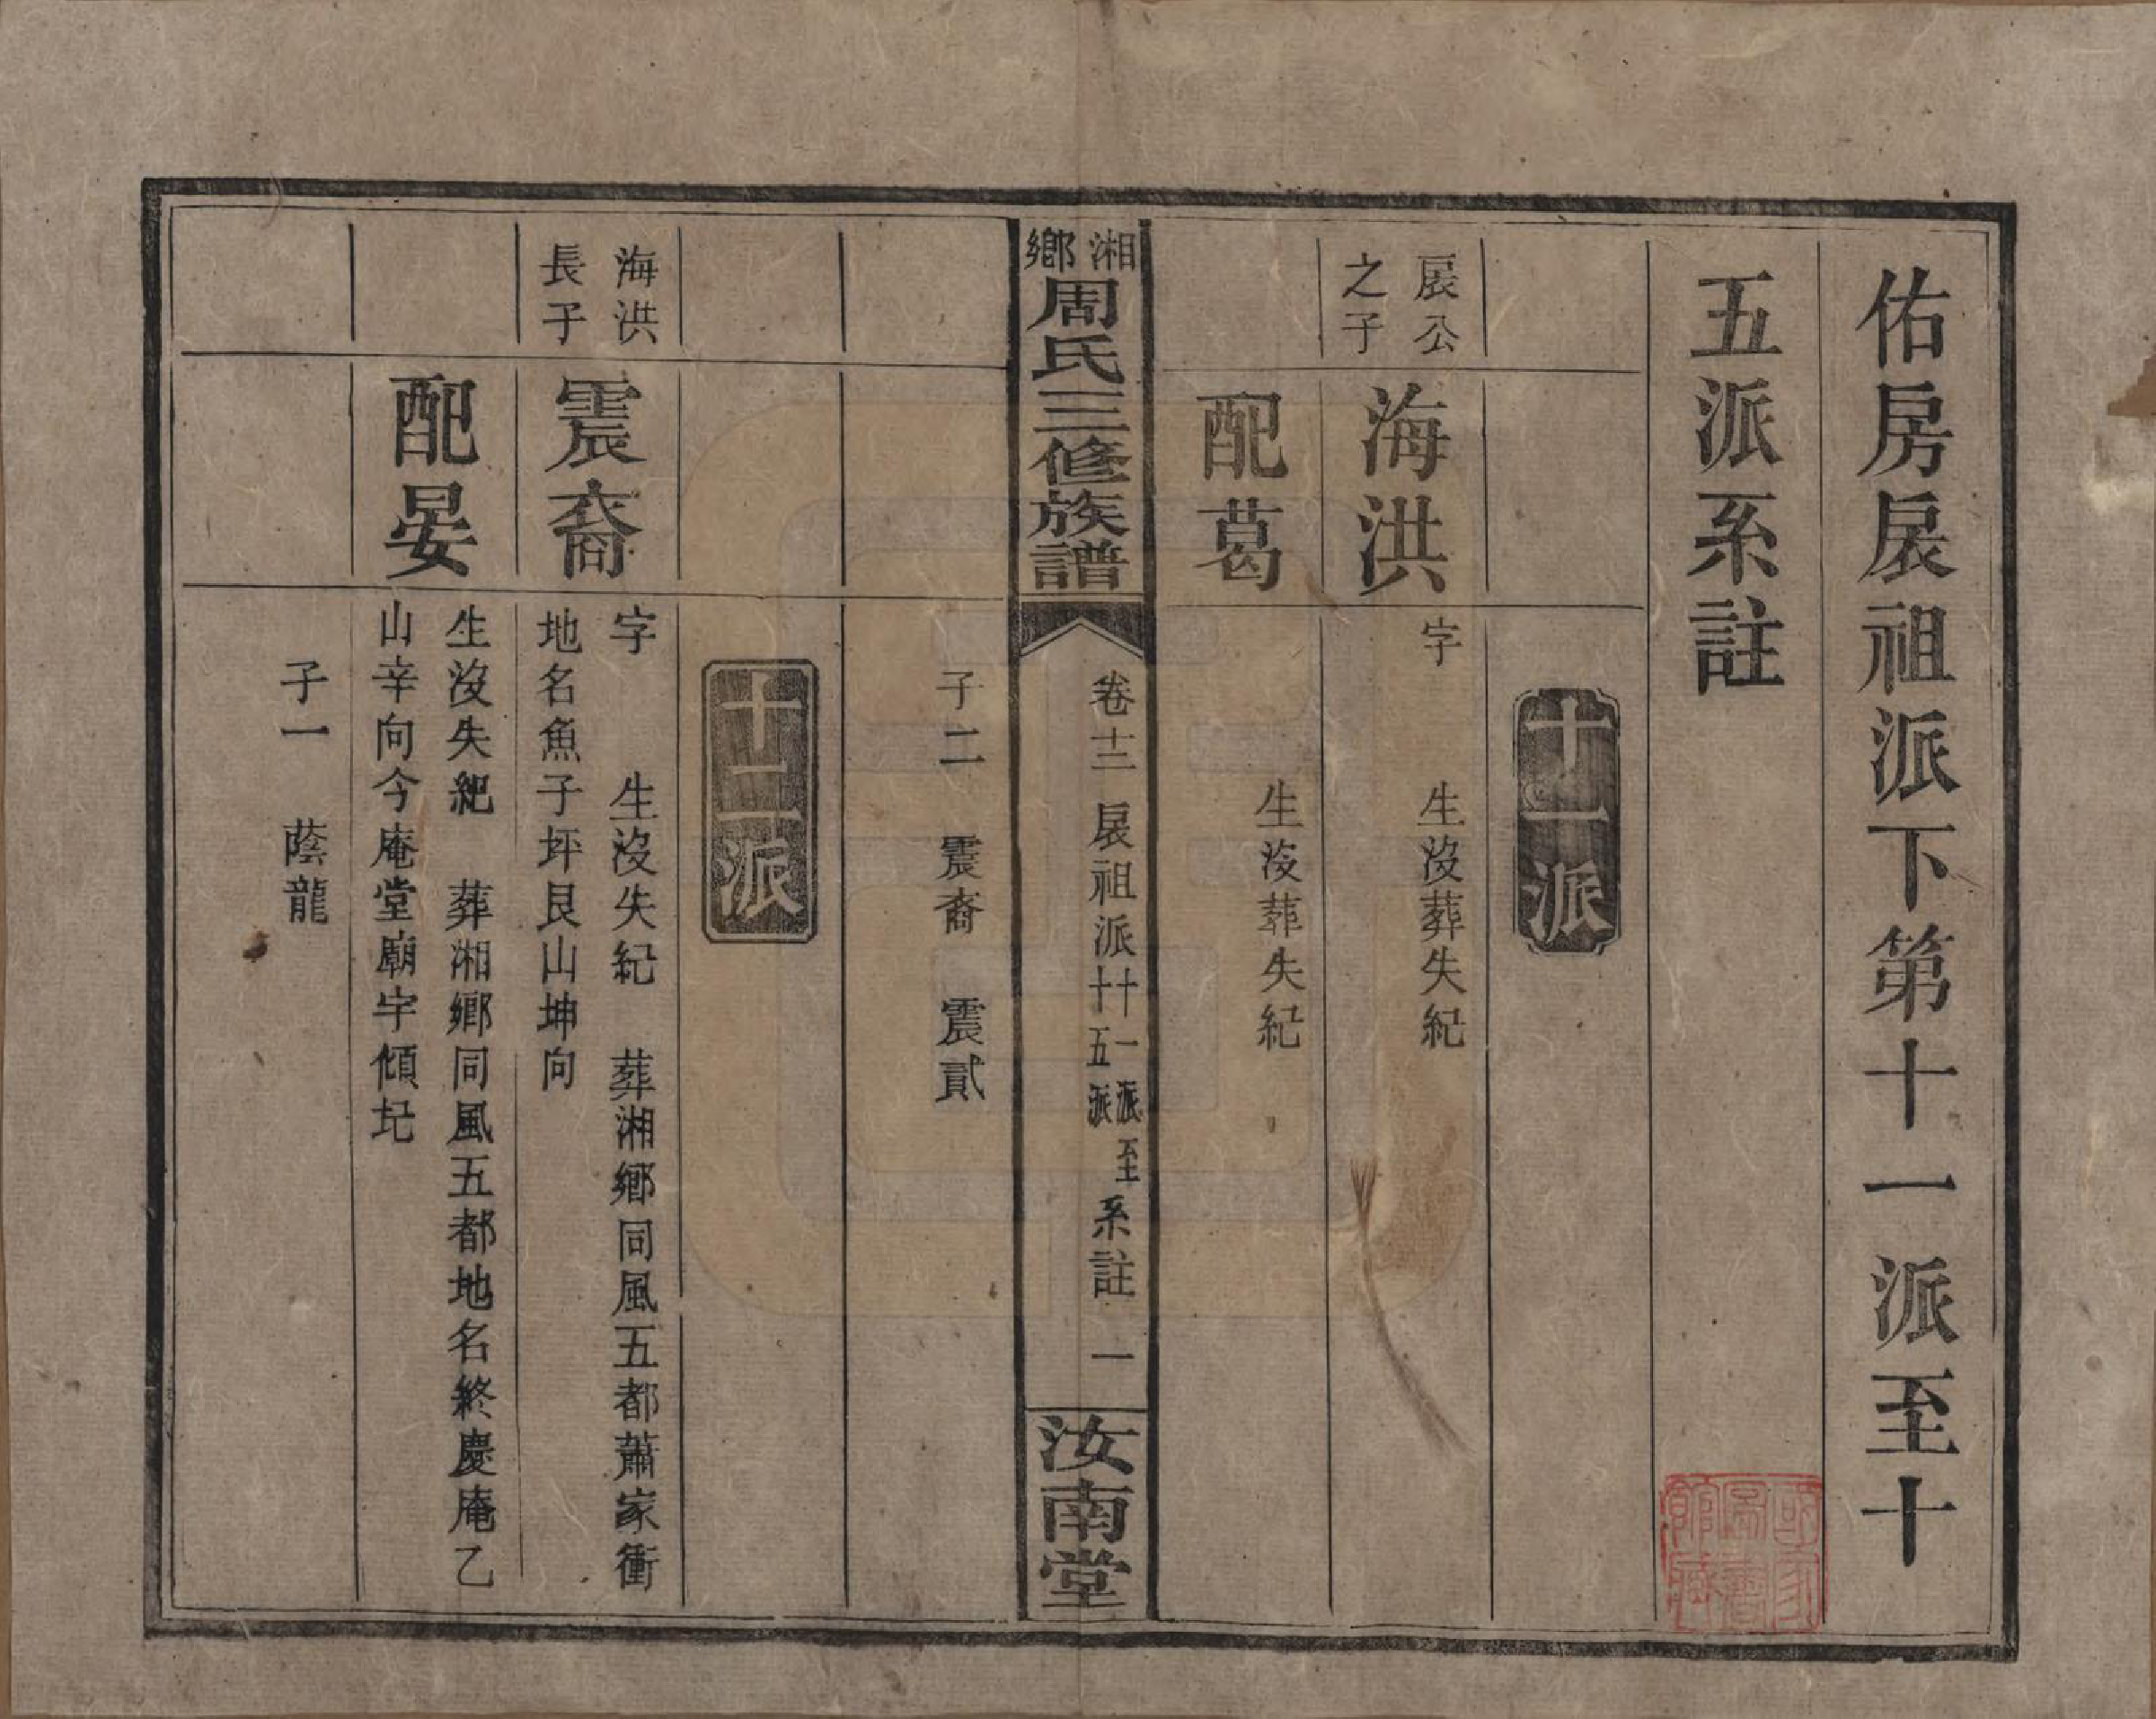 佑房扆祖派下第十一派至十
五派系註
十一派
扆公
之子
海洪
字　生沒葬失紀
配葛
生沒葬失紀
湘鄉
周氏三修族譜
卷十二　扆祖派十一派至十五派系註　一
汝南堂
子二　震裔　震貳
十二派
海洪
長子
震裔
字　生沒失紀　葬湘鄉同風五都蕭家衝
地名魚子坪艮山坤向
配晏
生沒失紀　葬湘鄉同風五都地名終慶庵乙
山辛向今庵堂廟宇傾圮
子一　蔭龍
國家圖書館藏